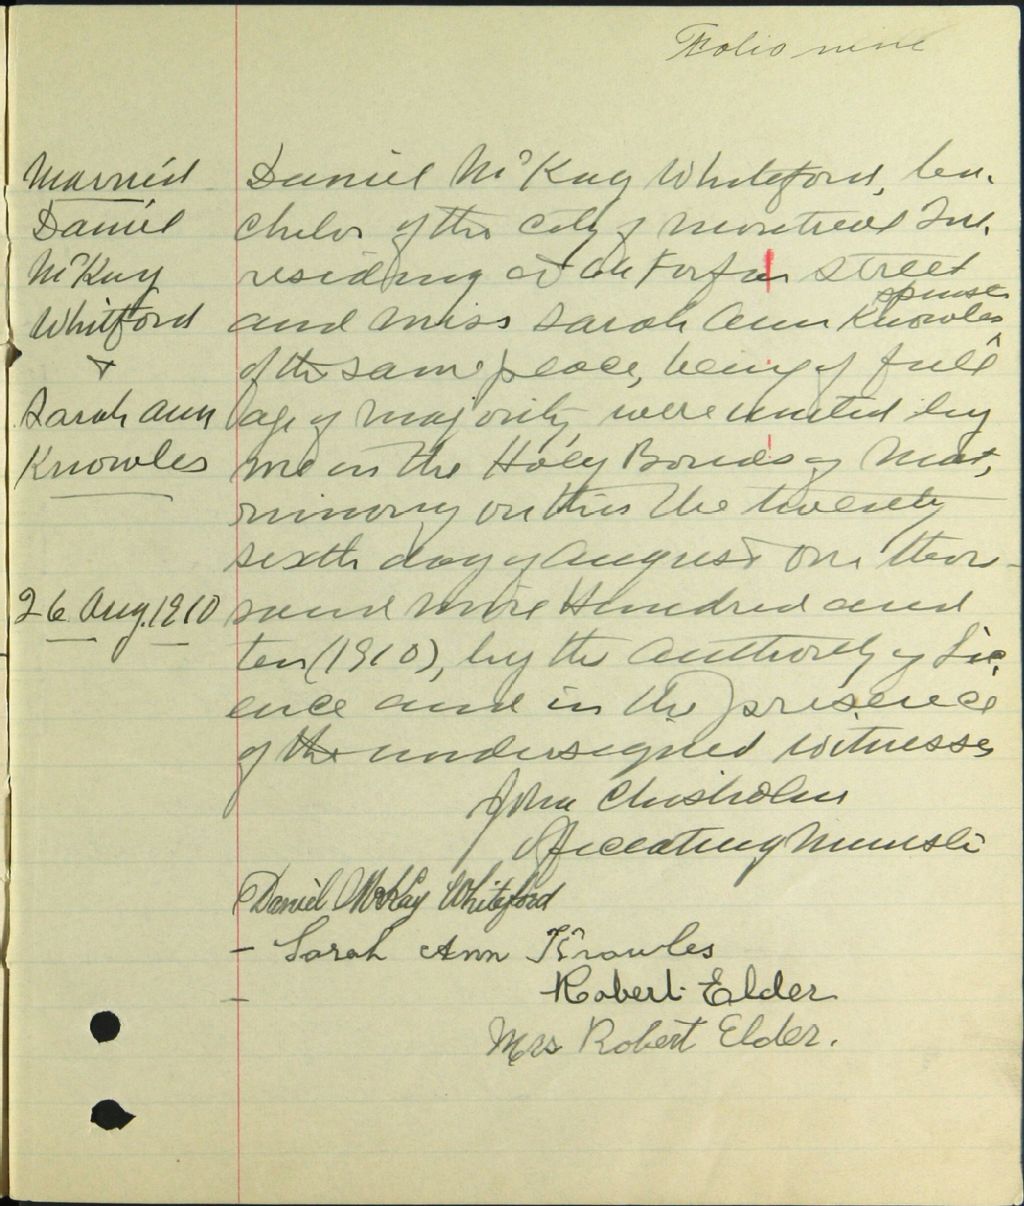 Folio nine
Married
Daniel
McKay
Whitford
&
Sarah Ann
Knowles
26 Aug. 1910
Daniel McKay Whiteford, ba-
chelor of the City of Montreal
residing at Forfar Street
spinster
and Miss Sarah Ann Knowles
of the same place, being of full
age of majority were united by
me in the Holy Bonds of Mat,
rimony on this the twenty
sixth day of August One thou-
sand nine Hundred and
ten (1910), by the Authority of Lic,
ence and in the presence
of the undersigned witnesses
John Chisholm
Officiating Minister
Daniel McKay Whiteford
- Sarah Ann Knowles
- Robert Elder
Mrs Robert Elder.